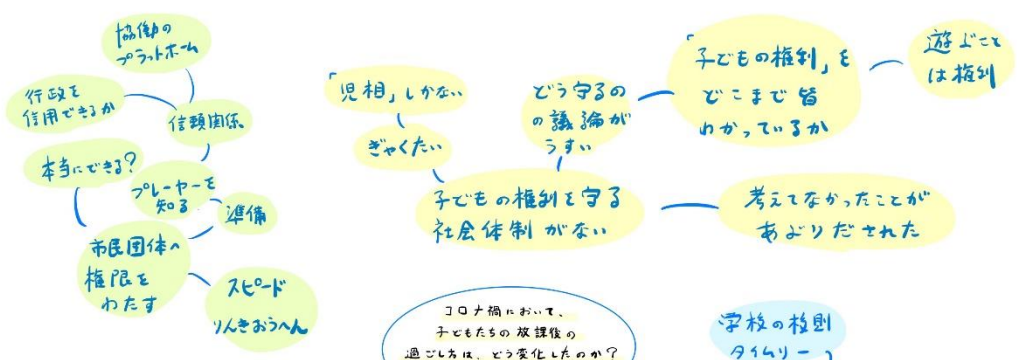 協働の
プラットホーム
行政を
信用できるか
信頼関係
本当にできる?
プレーヤーを
知る
準備
市民団体へ
権限を
わたす
スピード
りんきおうへん
「児相」しかない
ぎゃくたい
どう守るの
の議論が
うすい
「子どもの権利」を
どこまで皆
わかっているか
遊ぶこと
は権利
子どもの権利を守る
社会体制がない
考えてなかったことが
あぶりだされた
コロナ禍において、
子どもたちの放課後の
過ごし方は、どう変化したのか?
学校の校則
タイムリー